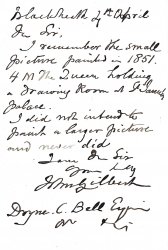 Blackheath 9th April
Dr Sir,
I remember the small
picture painted in 1851.
H M The Queen holding
a Drawing Room at St James's
palace.
I did not intend to
paint a larger picture
and never did
I am Dr Sir
Yours
John Gilbert
Doyne. C. Bell Esqre